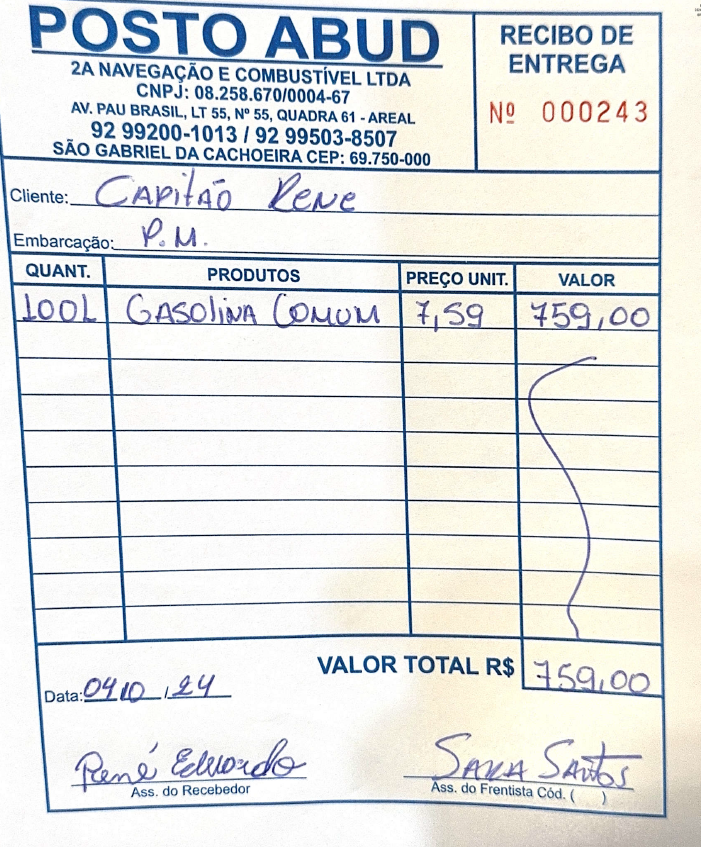 POSTO ABUD
2A NAVEGAÇÃO E COMBUSTÍVEL LTDA
CNPJ: 08.258.670/0004-67
AV. PAU BRASIL, LT 55, Nº 55, QUADRA 61 - AREAL
92 99200-1013 / 92 99503-8507
SÃO GABRIEL DA CACHOEIRA CEP: 69.750-000
RECIBO DE
ENTREGA
Nº 000243
Cliente: CAPITÃO RENE
Embarcação: P.M.
QUANT. PRODUTOS PREÇO UNIT. VALOR
100L GASOLINA COMUM 7,59 759,00
VALOR TOTAL R$ 759,00
Data: 04/10/24
René Eduardo SARA SANTOS
Ass. do Recebedor Ass. do Frentista Cód. ( )